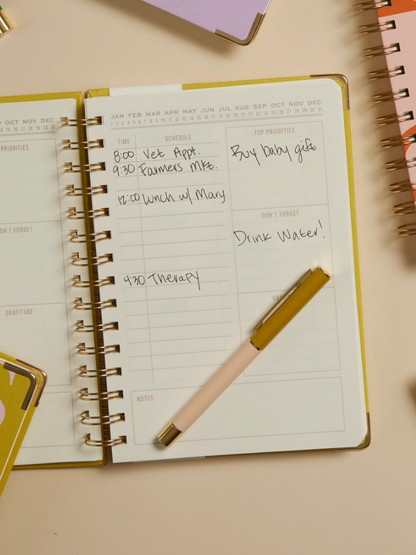 JAN FEB MAR APR MAY JUN JUL AUG SEP OCT NOV DEC
OCT NOV DEC
PRIORITIES
DON'T FORGET
GRATITUDE
TIME SCHEDULE
8:00 Vet Appt.
9:30 Farmers Mkt.
12:00 Lunch w/ Mary
4:30 Therapy
TOP PRIORITIES
Buy baby gift
DON'T FORGET
Drink Water!
NOTES